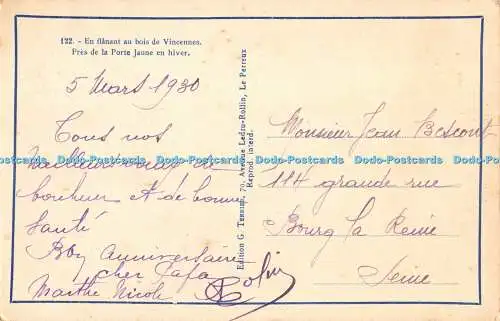 122. - En flânant au bois de Vincennes.
Près de la Porte Jaune en hiver.
5 Mars 1930
Tous nos
meilleurs voeux de
bonheur et de bonne
santé
Bon anniversaire
cher Papa
Marthe Nicole Robin
Edition G. Terrier, 70, Avenue Ledru-Rollin, Le Perreux
Reprod. interd.
Monsieur Jean Bescont
114 grande rue
Bourg la Reine
Seine
Dodo-Postcards Dodo-Postcards Dodo-Postcards Dodo-Postcards Dodo-Postcards